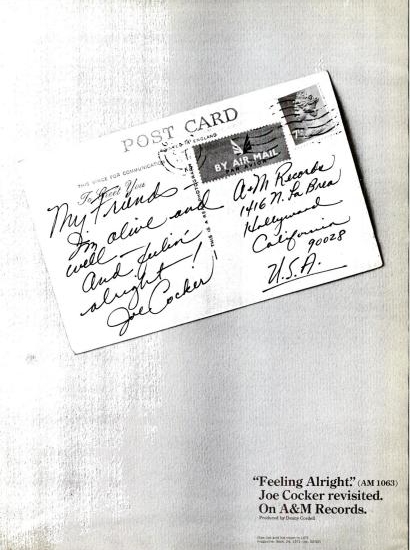 POST CARD
THIS SPACE FOR COMMUNICATION
ENGLAND
To Greet You
BY AIR MAIL
PAR AVION
My Friends
I'm alive and
well —
And feelin'
alright!
Joe Cocker
A&M Records
1416 N. La Brea
Hollywood
California
90028
U.S.A.
"Feeling Alright." (AM 1063)
Joe Cocker revisited.
On A&M Records.
Produced by Denny Cordell